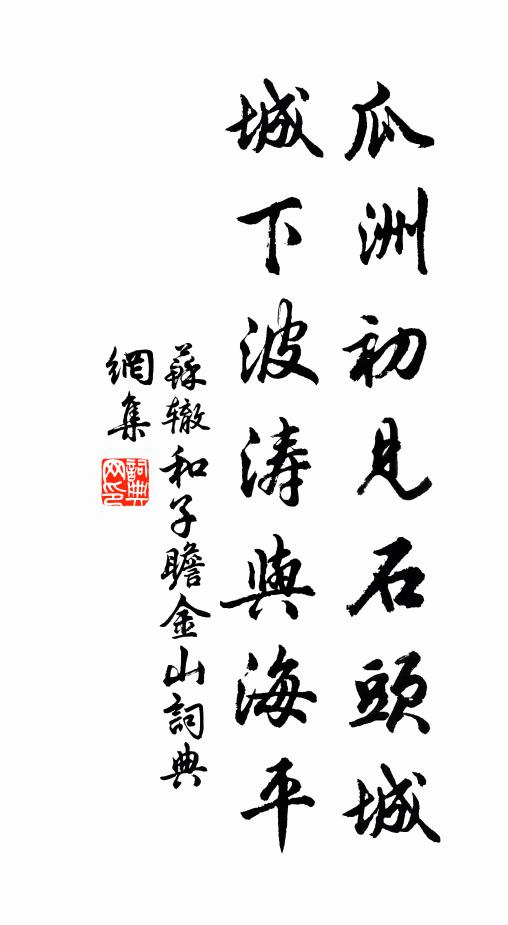 瓜洲初見石頭城
城下波涛與海平
蘇辙和子瞻金山詞典
網集
詞典
网印